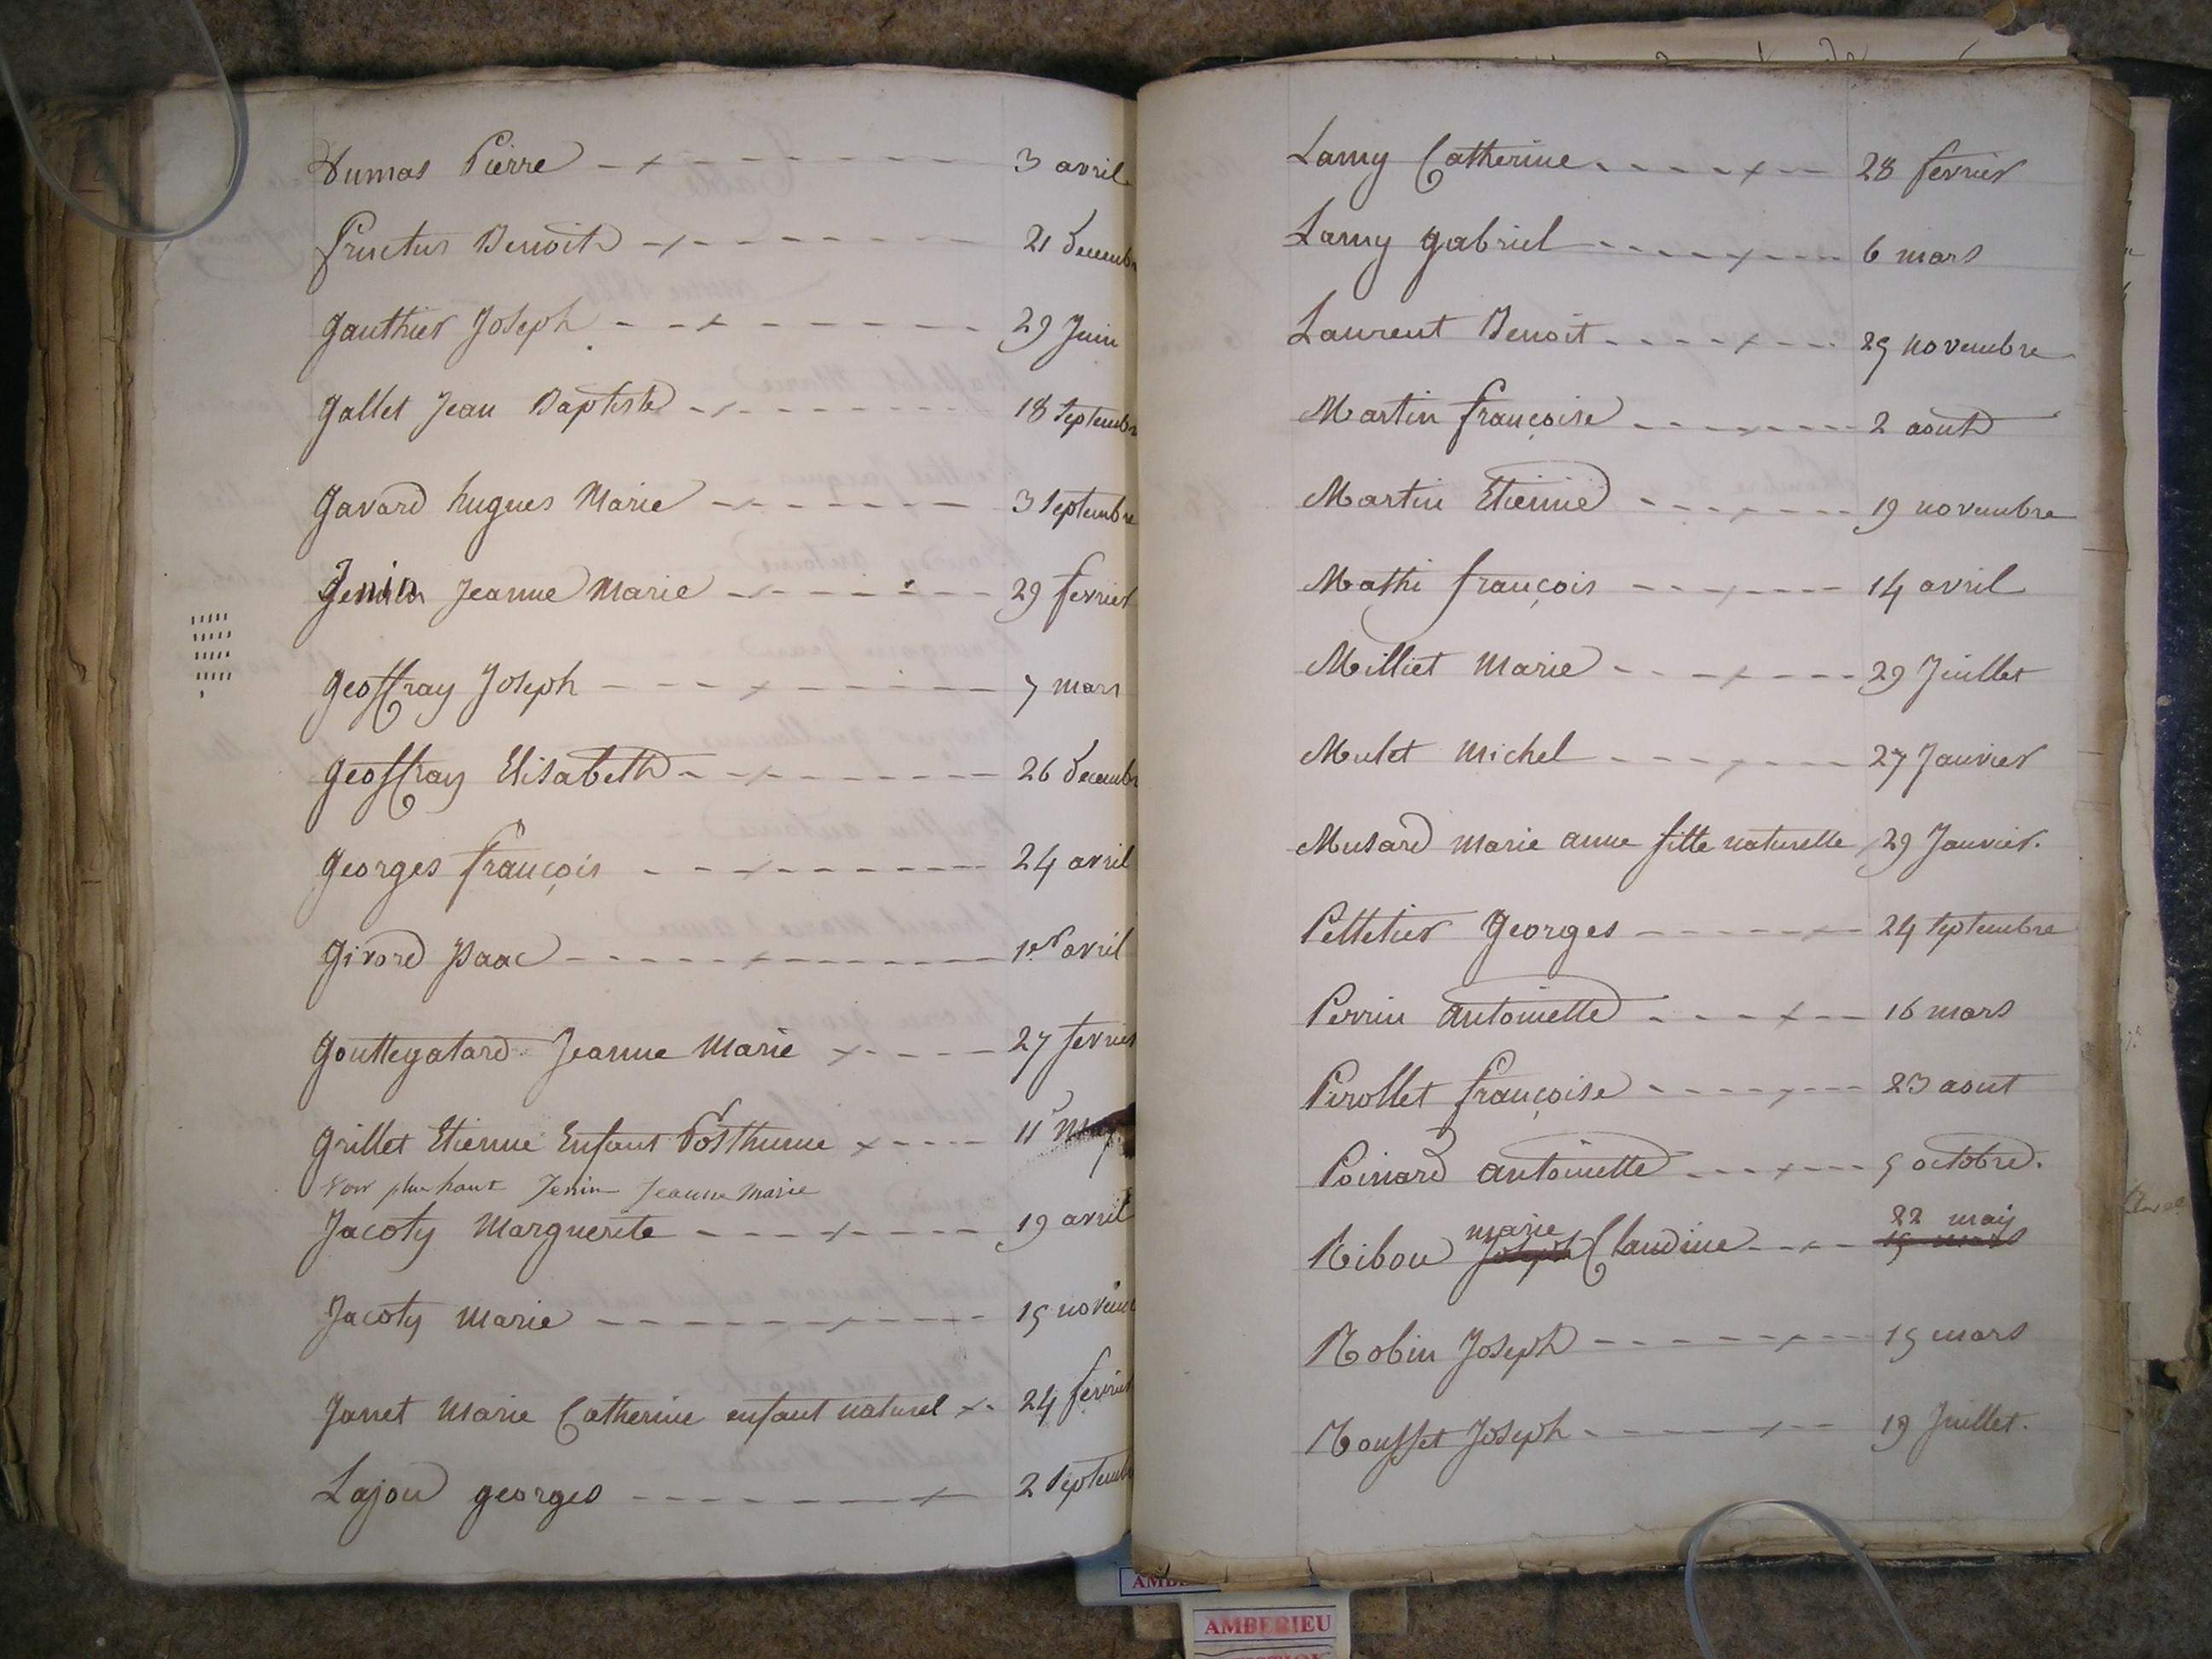 Dumas Pierre 3 avril
Fructus Benoit 21 decembre
Gauthier Joseph 29 Juin
Gallet Jean Baptiste 18 Septembre
Gavard hugues Marie 3 Septembre
Jenin Jeanne Marie 29 fevrier
Geoffray Joseph 7 mars
Geoffray Elisabeth 26 decembre
Georges françois 24 avril
Girord Isaac 1er avril
Gouttegatard Jeanne Marie 27 fevrier
Grillet Etienne Enfant Posthume 11
Voir plus haut Jenin Jeanne Marie
Jacoty Marguerite 19 avril
Jacoty Marie 15 novem
Janet Marie Catherine enfant naturel 24 fevrier
Lajou georges 2 Septembre
Lamy Catherine 28 fevrier
Lamy gabriel 6 mars
Laurent Benoit 29 novembre
Martin françoise 2 aout
Martin Etienne 19 novembre
Mathi françois 14 avril
Milliet Marie 29 Juillet
Mulet Michel 27 Janvier
Musard marie anne fille naturelle 29 Janvier.
Pelletier Georges 24 Septembre
Perrin antoinette 16 mars
Pirollet françoise 23 aout
Poinard antoinette 5 octobre.
marie 22 mai
Ribou Joseph Claudine 15 mars
Robin Joseph 15 mars
Rousset Joseph 19 Juillet.
AMBERIEU